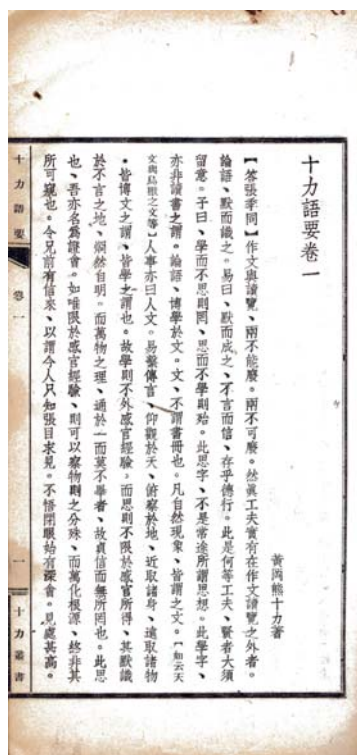 十力語要卷一
黃岡熊十力著
【答張季同】作文與讀覽、兩不能廢。兩不可廢。然真工夫實有在作文讀覽之外者。
論語、默而識之。易曰、默而成之、不言而信、存乎德行。此是何等工夫、賢者大須
留意。子曰、學而不思則罔、思而不學則殆。此思字、不是常途所謂思想。此學字、
亦非讀書之謂。論語、博學於文。文、不謂書冊也。凡自然現象、皆謂之文。【如云天
文與鳥獸之文等】人事亦曰人文。易繫傳言、仰觀於天、俯察於地、近取諸身、遠取諸物
、皆博文之謂、皆學之謂也。故學則不外感官經驗。而思則不限於感官所得、其默識
於不言之地、烱然自明。而萬物之理、通於一而莫不畢者、故貞信而無所罔也。此思
也、吾亦名為證會。如唯限於感官經驗、則可以察物則之分殊、而萬化根源、終非其
所可窺也。令兄前有信來、以謂今人只知張目求見。不悟閉眼始有深會。見處甚高。
十力語要 卷一 一 十力叢書